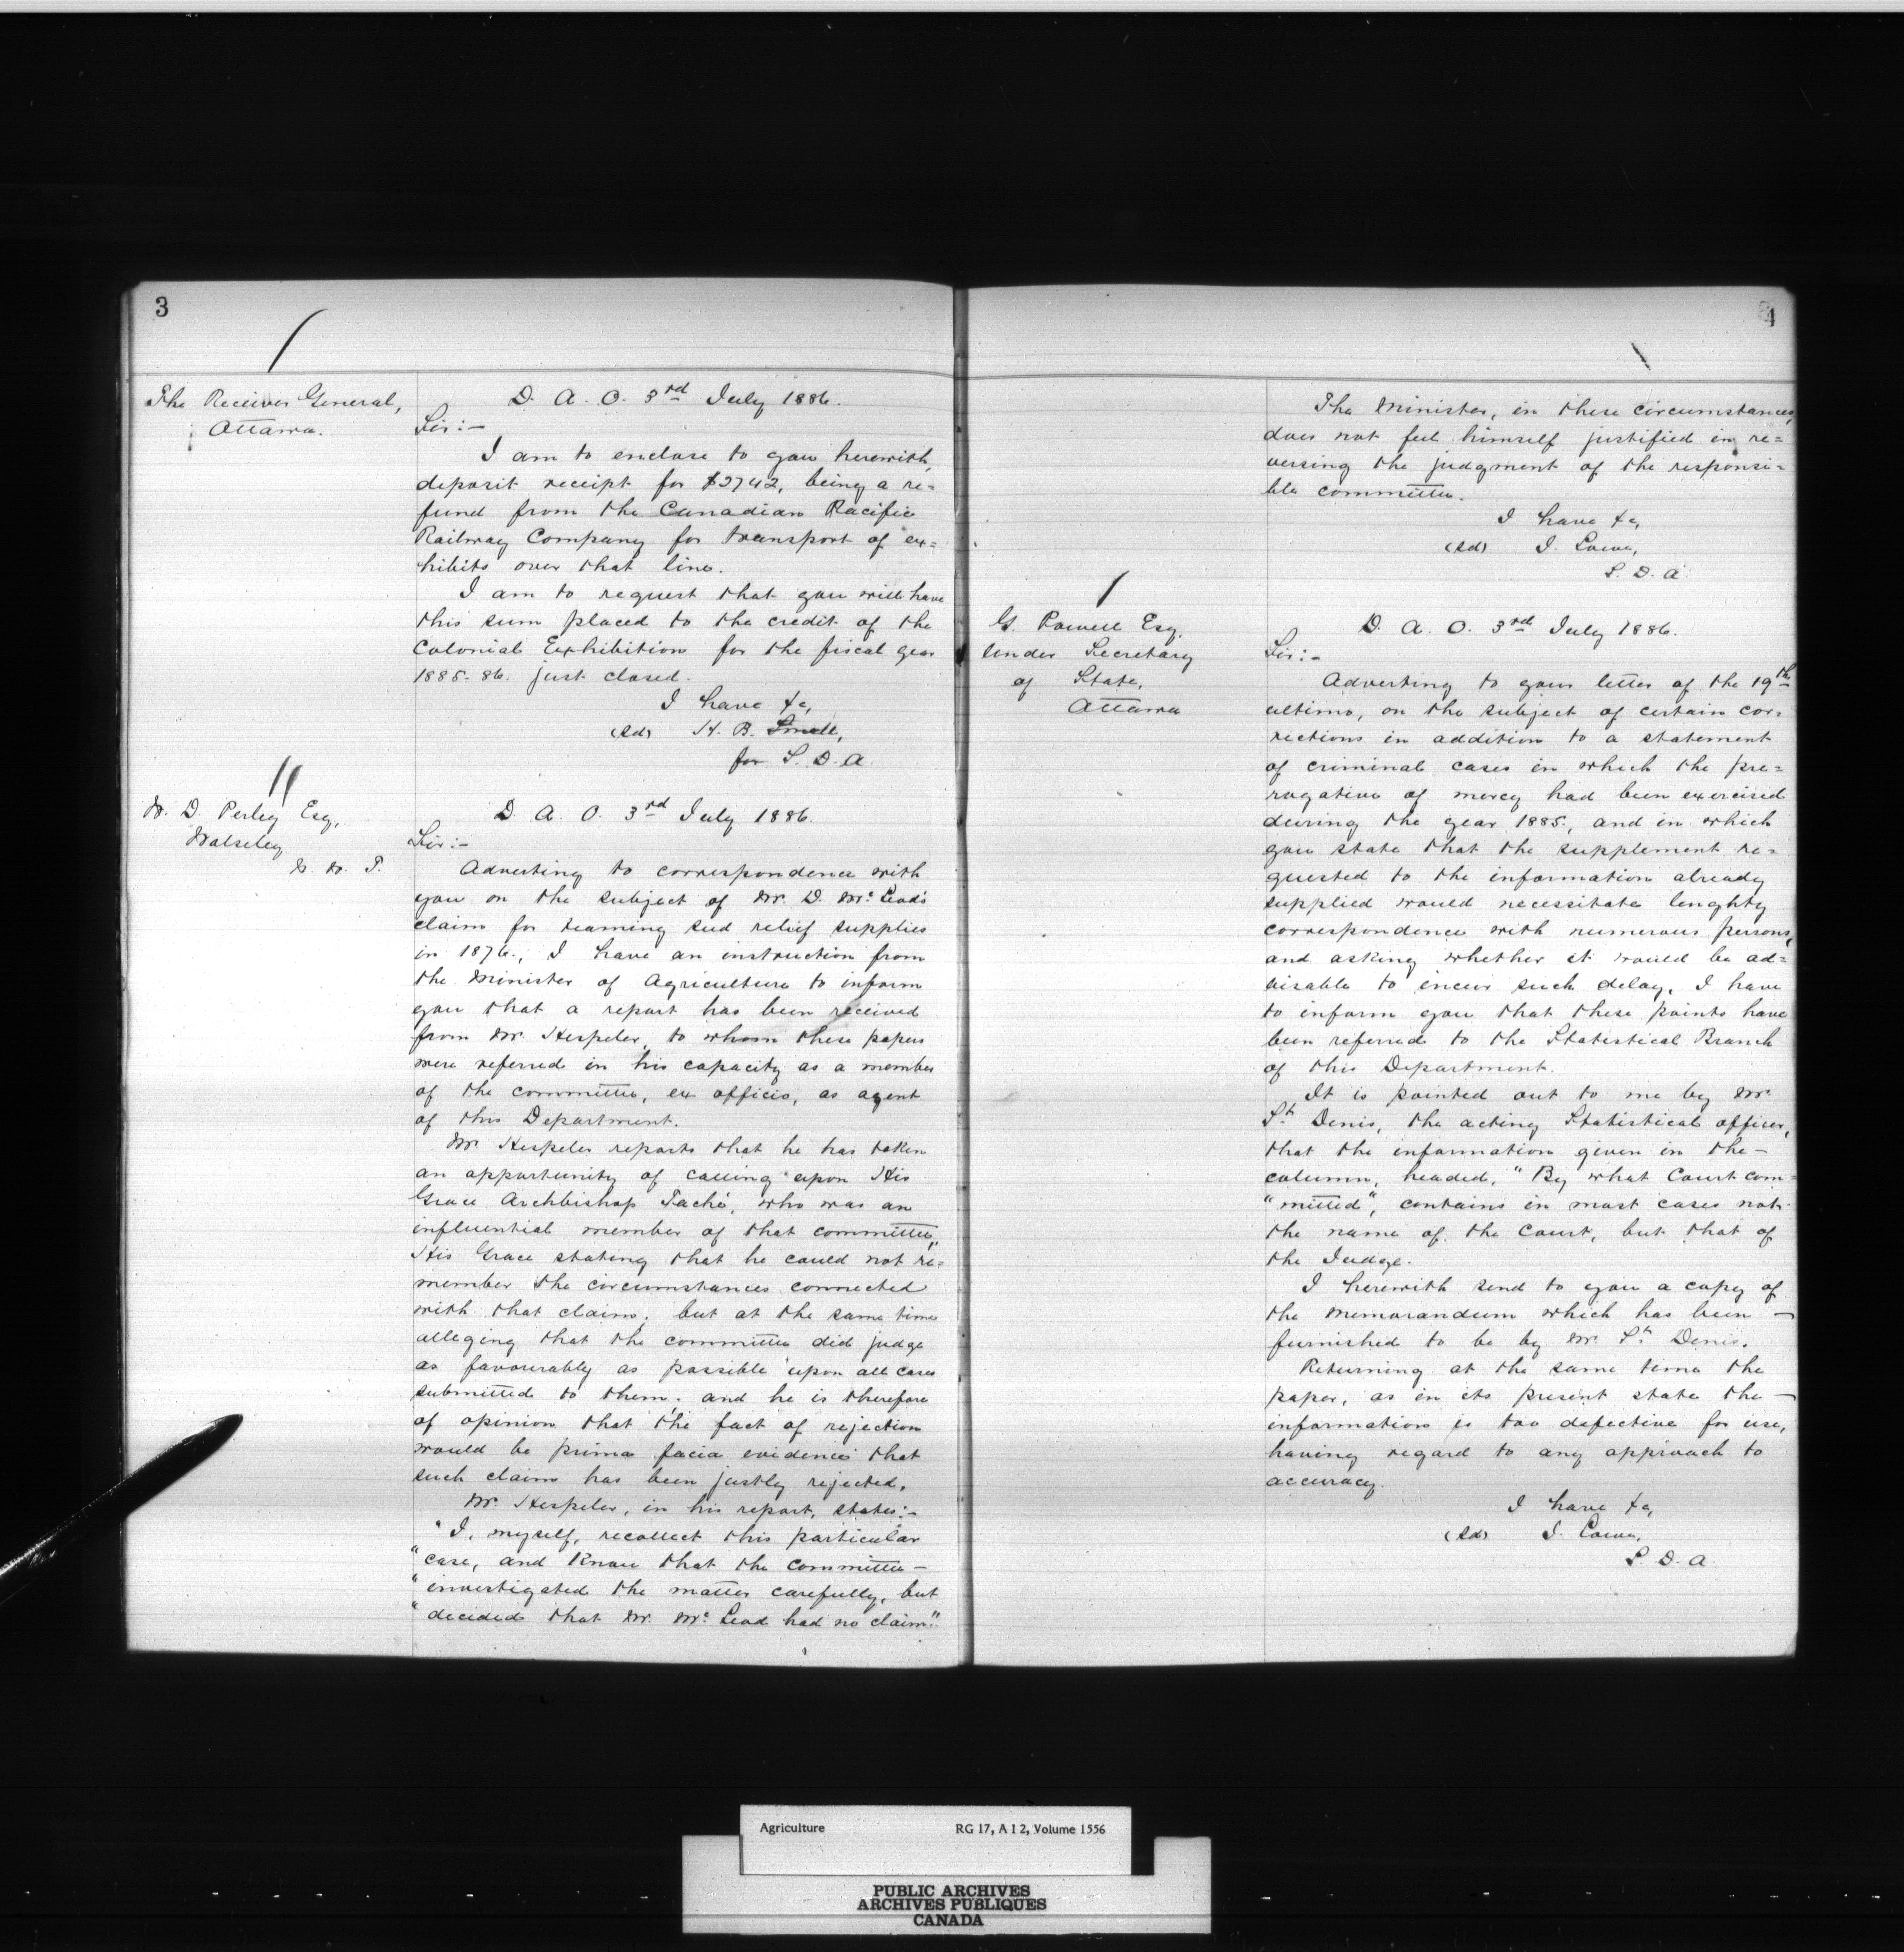 3
The Receiver General,
Ottawa.
D. A. O. 3rd July 1886.
Sir:-
I am to enclose to you herewith,
deposit receipt for $2742, being a re=
fund from the Canadian Pacific
Railway Company for transport of ex=
hibits over that line.
I am to request that you will have
this sum placed to the credit of the
Colonial Exhibition for the fiscal year
1885-86. just closed.
I have &c,
(Sd) H. B. Small,
for S. D. A.
W. D. Perley Esq,
Wolseley
N. W. T.
D. A. O. 3rd July 1886.
Sir:-
Adverting to correspondence with
you on the subject of Mr. D. McLeod's
claim for teaming seed relief supplies
in 1876., I have an instruction from
the Minister of Agriculture to inform
you that a report has been received
from Mr. Hespeler, to whom these papers
were referred in his capacity as a member
of the committee, ex officio, as agent
of this Department.
Mr. Hespeler reports that he has taken
an opportunity of calling upon His
Grace Archbishop Taché, who was an
influential member of that committee,
His Grace stating that he could not re=
member the circumstances connected
with that claim; but at the same time
alleging that the committee did judge
as favourably as possible upon all cases
submitted to them; and he is therefore
of opinion that the fact of rejection
would be prima facia evidence that
such claim has been justly rejected.
Mr. Hespeler, in his report, states:-
"I, myself, recollect this particular
"case, and know that the committee -
"investigated the matter carefully, but
"decided that Mr. McLeod had no claim."
4
The Minister, in these circumstances,
does not feel himself justified in re=
versing the judgment of the responsi=
ble committee.
I have &c,
(Sd) J. Lowe,
S. D. A.
G. Powell Esq.
Under Secretary
of State,
Ottawa
D. A. O. 3rd July 1886.
Sir:-
Adverting to your letter of the 19th
ultimo, on the subject of certain cor=
rections in addition to a statement
of criminal cases in which the pre=
rogative of mercy had been exercised
during the year 1885., and in which
you state that the supplement re=
quested to the information already
supplied would necessitate lenghty
correspondence with numerous persons,
and asking whether it would be ad=
visable to incur such delay, I have
to inform you that these points have
been referred to the Statistical Branch
of this Department.
It is pointed out to me by Mr.
St. Denis, the acting Statistical officer,
that the information given in the -
column, headed, "By what Court com=
"mitted", contains in most cases not
the name of the Court, but that of
the Judge.
I herewith send to you a copy of
the memorandum which has been -
furnished to be by Mr. St. Denis.
Returning at the same time the
paper, as in its present state the -
information is too defective for use,
having regard to any approach to
accuracy.
I have &c,
(Sd) J. Lowe,
S. D. A.
Agriculture RG 17, A I 2, Volume 1556
PUBLIC ARCHIVES
ARCHIVES PUBLIQUES
CANADA